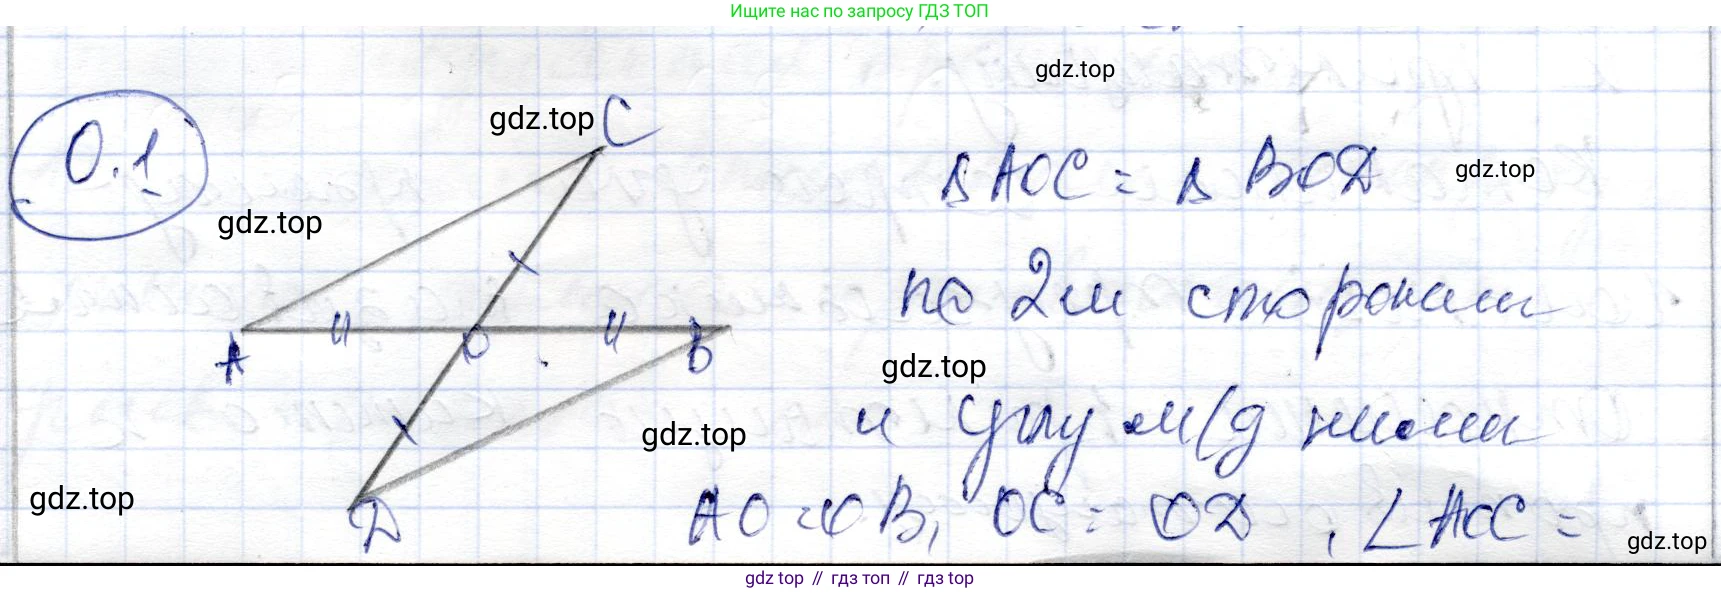 Ищите нас по запросу ГДЗ ТОП
gdz.top
0.1
gdz.top
C
Δ AOC = Δ BOD
gdz.top
gdz.top
по 2м сторонам
A
O
B
gdz.top
и углу м/д ними
gdz.top
gdz.top
D
AO = OB, OC = OD, ∠AOC =
gdz.top
gdz.top // гдз топ // гдз top